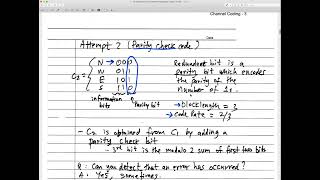 Channel Coding - 3
Date
Attempt 2 (Parity check code)
C₂ = { N → 000
N 011
E 101
S 110
information bits
Parity bit
Redundant bit is a
parity bit which encodes
the parity of the
number of 1s.
→ Blocklength = 3
→ Code Rate = 2/3
- C₂ is obtained from C₁ by adding a
parity check bit
→ 3rd bit is the modulo 2 sum of first two bits
Q: Can you detect that an error has occurred?
A: Yes, sometimes.